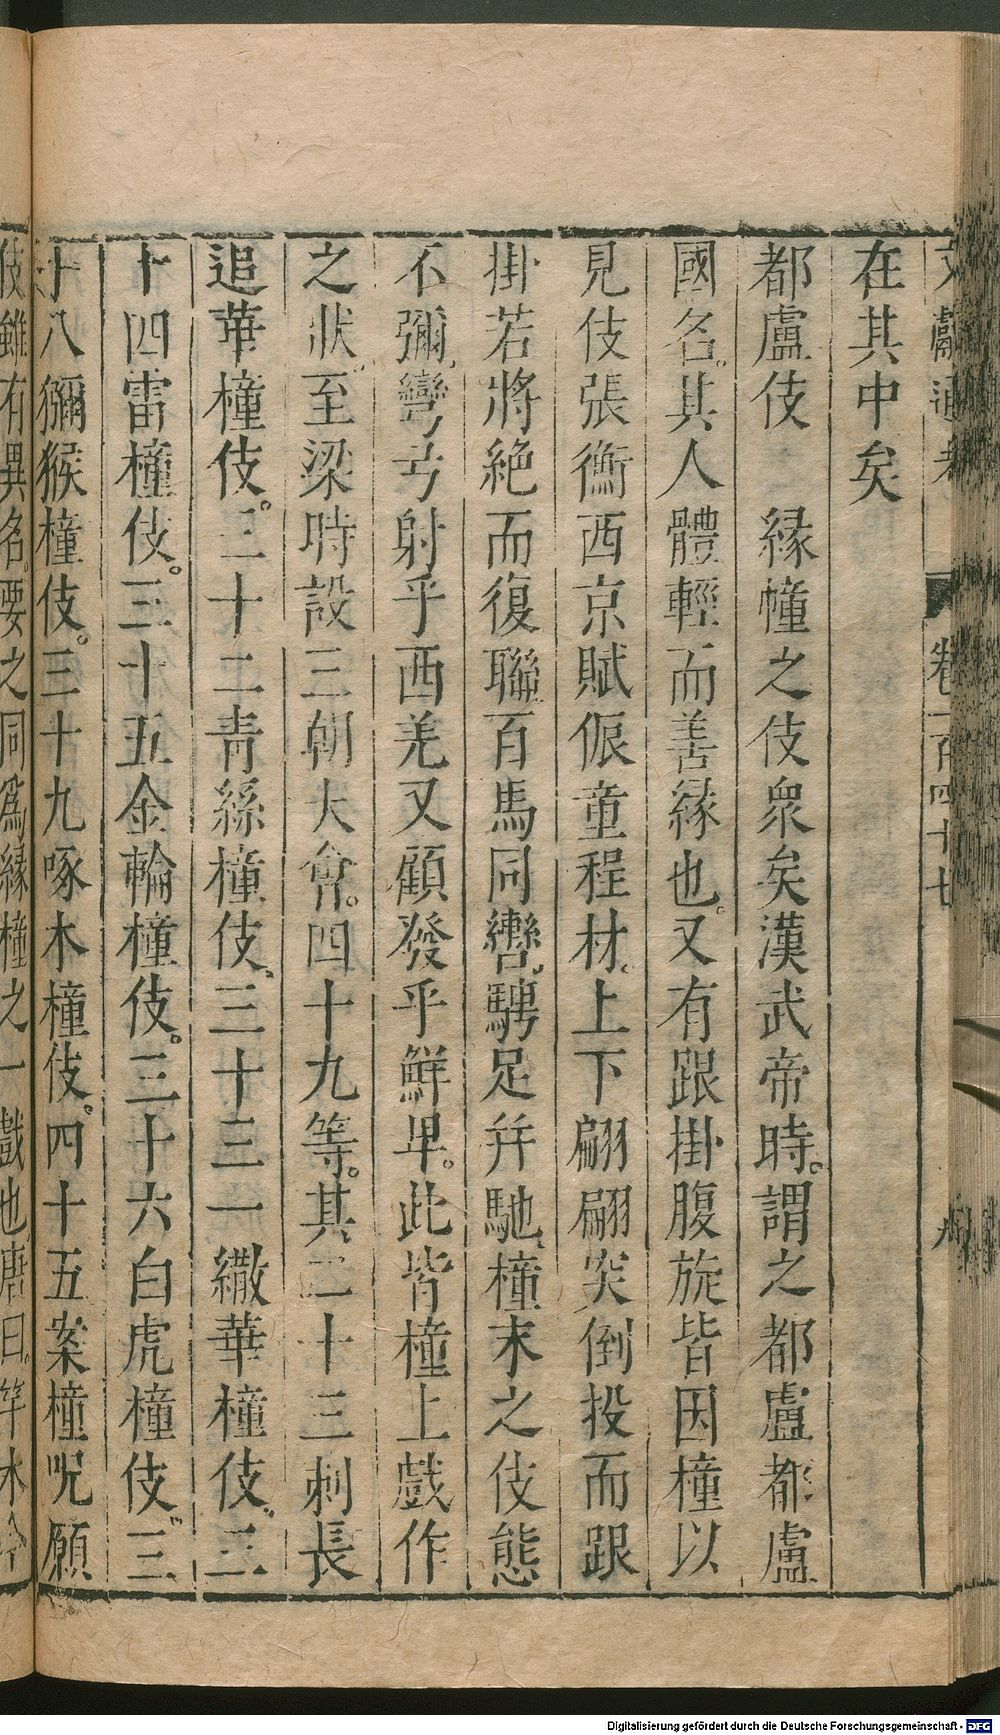 文獻通考 卷一百四十七 九
在其中矣
都盧伎 緣幢之伎衆矣漢武帝時。謂之都盧都盧
國名。其人體輕而善緣也。又有跟掛腹旋皆因橦以
見伎張衡西京賦侲童程材。上下翩翩突倒投而跟
掛若將絶而復聯百馬同轡。騁足并馳橦末之伎態
不彌。彎弓射乎西羌又顧發乎鮮卑。此皆橦上戲作
之狀。至梁時設三朝大會。四十九等。其二十三刺長
追華橦伎。三十二青絲橦伎。三十三一繖華橦伎。三
十四雷橦伎。三十五金輪橦伎。三十六白虎橦伎。三
十八獼猴橦伎。三十九啄木橦伎。四十五案橦呪願
伎雖有異名。要之同爲緣橦之一戲也。唐曰。竿木今
Digitalisierung gefördert durch die Deutsche Forschungsgemeinschaft - DFG